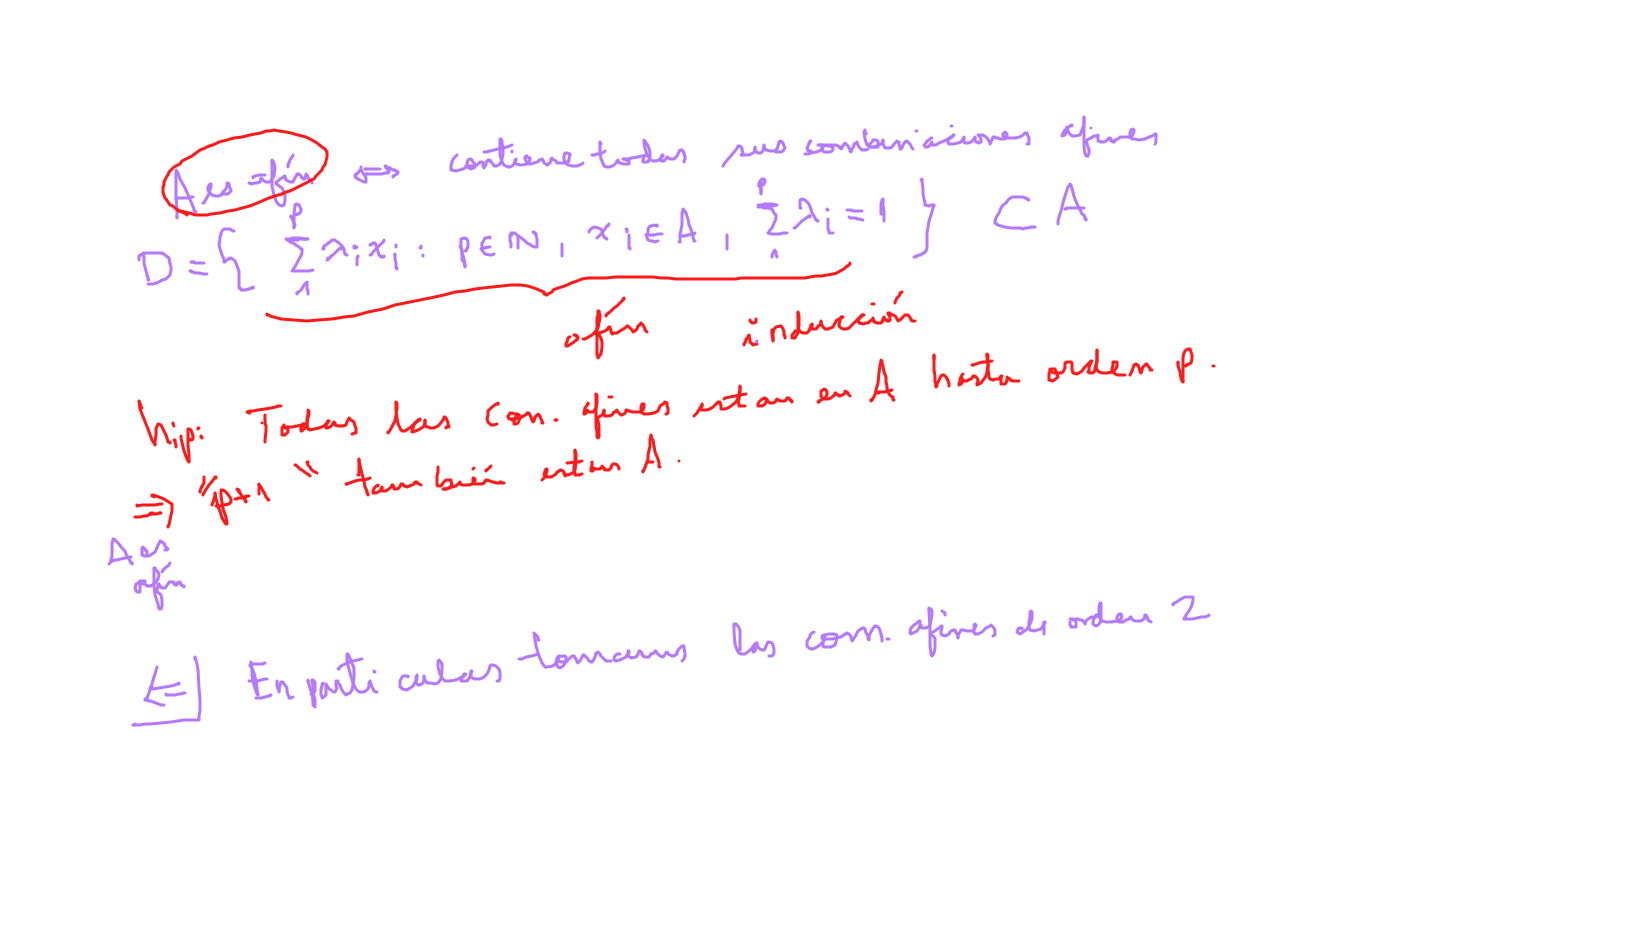 A es afín ⟺ contiene todas sus combinaciones afines
D = { ∑₁ᵖ λᵢxᵢ : p∈ℕ, xᵢ∈A, ∑₁ᵖ λᵢ = 1 } ⊂ A
afín inducción
hip: Todas las com. afines estan en A hasta orden p.
⇒ "p+1" también estan A.
A es
afín
⇐| En particular tomamos las com. afines de orden 2